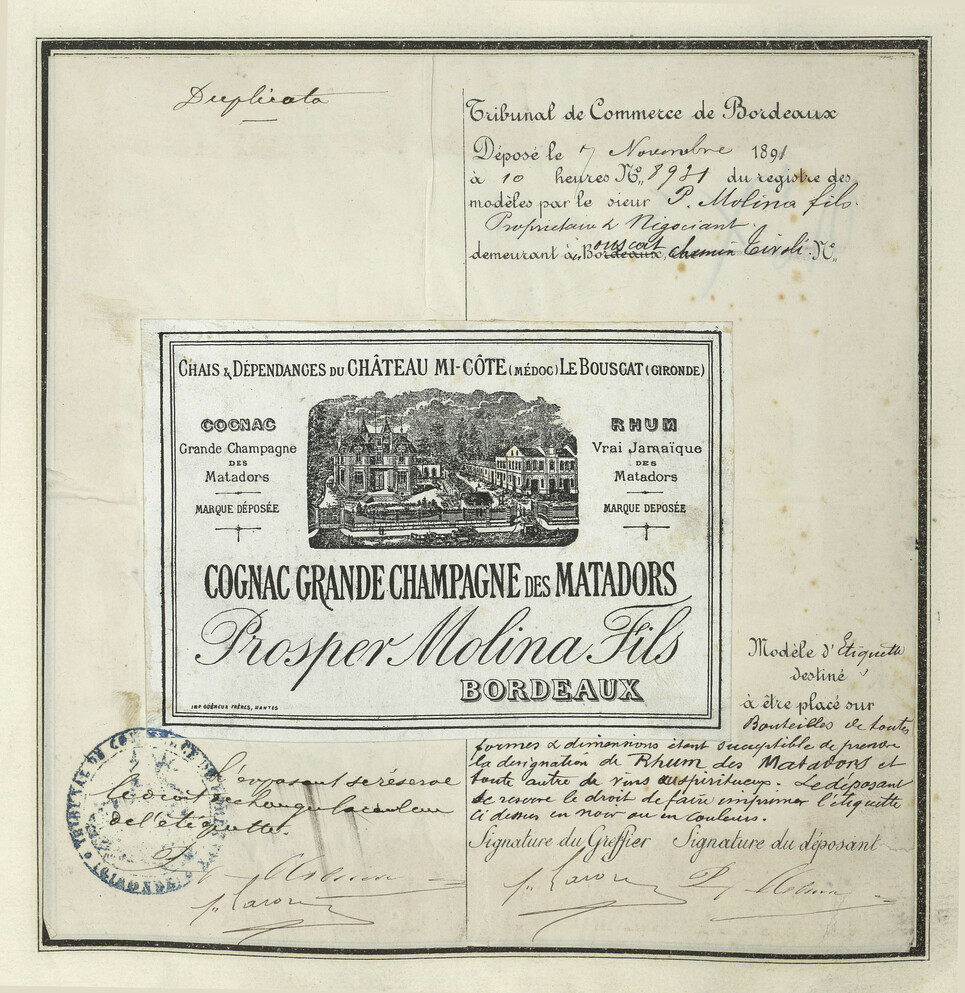 Duplicata
Tribunal de Commerce de Bordeaux
Déposé le 7 Novembre 1891
à 10 heures No, 8931 du registre des
modèles par le sieur P. Molina fils.
Propriétaire & Négociant.
demeurant à, Bouscat chemin Tivoli. No,
CHAIS & DÉPENDANCES DU CHÂTEAU MI-CÔTE (MÉDOC) LE BOUSCAT (GIRONDE)
COGNAC
Grande Champagne
DES
Matadors
MARQUE DÉPOSÉE
RHUM
Vrai Jamaïque
DES
Matadors
MARQUE DEPOSÉE
COGNAC GRANDE CHAMPAGNE DES MATADORS
Prosper Molina Fils
BORDEAUX
IMP. GUÉNEUX FRÈRES, NANTES
Modèle d'Etiquette
destiné
à être placé sur
Bouteilles de toutes
formes & dimensions étant suceptible de prendre
la désignation de Rhum des Matadors et
toute autre de vins ou spiritueux. Le déposant
se reserve le droit de faire imprimer l'étiquette
ci dessus en noir ou en couleurs.
L'exposant se réserve
le droit de changer la couleur
de l'étiquette.
TRIBUNAL DE COMMERCE DE BORDEAUX
(GIRONDE)
Signature du Greffier Signature du déposant